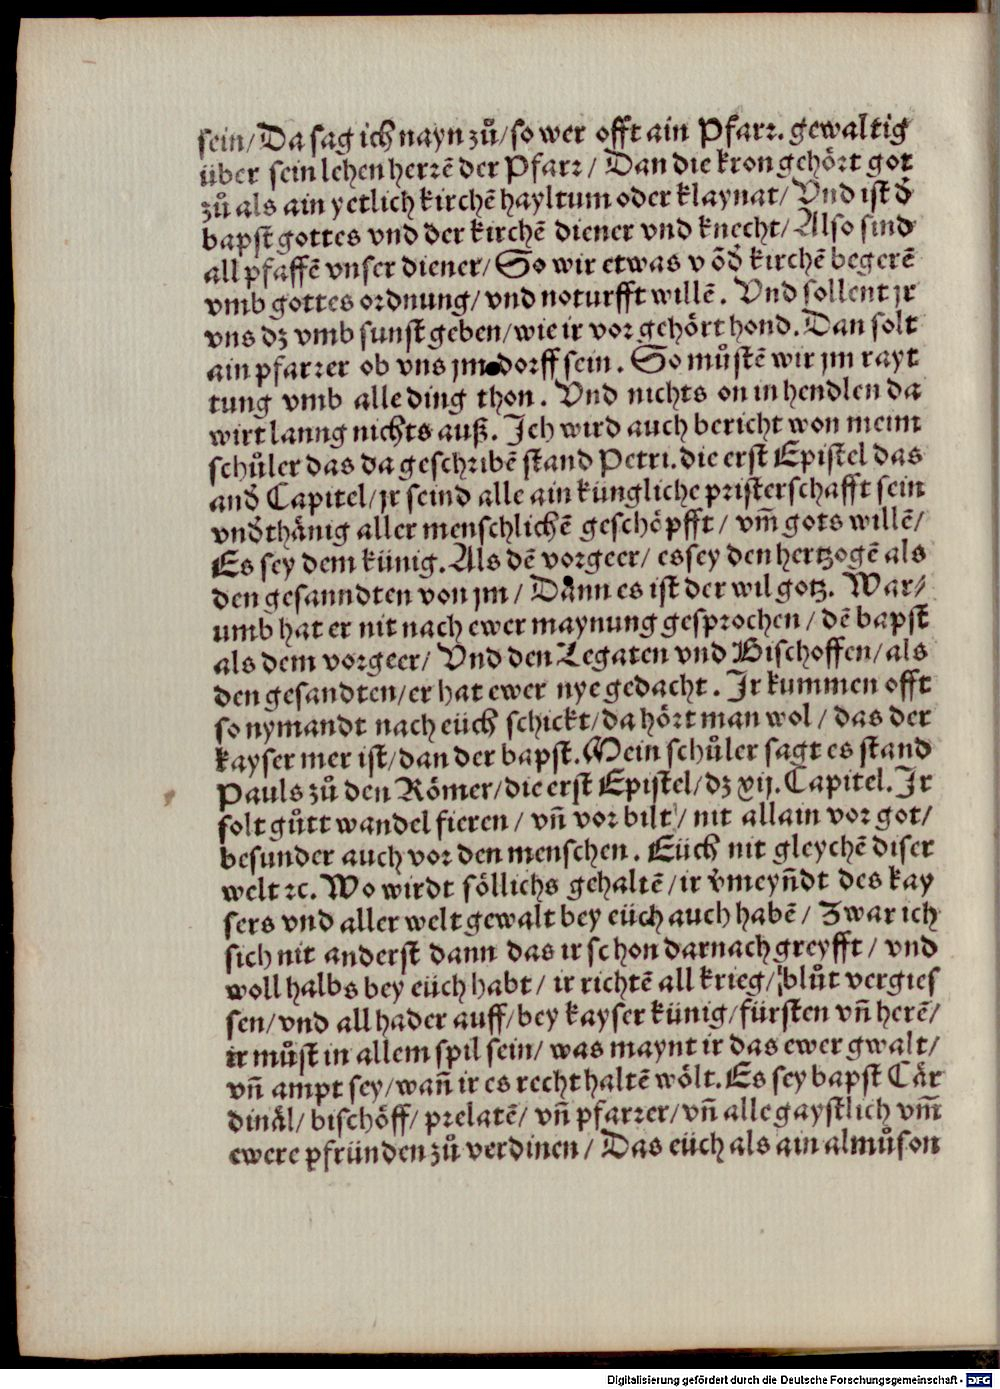 sein/ Da sag ich nayn zů/ so wer offt ain Pfarr. gewaltig
über sein lehen herrē der Pfarr/ Dan die kron gehört got
zů als ain yetlich kirchē hayltum oder klaynat/ Vnd ist d̄
bapst gottes vnd der kirchē diener vnd knecht/ Also sind
all pfaffē vnser diener/ So wir etwas võ d̄ kirchē begerē
vmb gottes ordnung/ vnd noturfft willē. Vnd sollent jr
vns dz vmb sunst geben/ wie ir vor gehört hond. Dan solt
ain pfarrer ob vns jm dorff sein. So můstē wir jm rayt
tung vmb alle ding thon. Vnd nichts on in hendlen da
wirt lanng nichts auß. Ich wird auch bericht won meim
schůler das da geschribē stand Petri. die erst Epistel das
and̄ Capitel/ jr seind alle ain küngliche pristerschafft sein
vnd̄thänig aller menschlichē geschöpfft/ vm̄ gots willē/
Es sey dem künig. Als dē vorgeer/ es sey den hertzogē als
den gesanndten von jm/ Dann es ist der wil gotz. War/
umb hat er nit nach ewer maynung gesprochen/ dē bapst
als dem vorgeer/ Vnd den Legaten vnd Bischoffen/ als
den gesandten/ er hat ewer nye gedacht. Ir kummen offt
so nymandt nach eüch schickt/ da hört man wol/ das der
kayser mer ist/ dan der bapst. Mein schůler sagt es stand
Pauls zů den Römer/ die erst Epistel/ dz xij. Capitel. Ir
solt gůtt wandel fieren/ vn̄ vor bilt/ nit allain vor got/
besunder auch vor den menschen. Eüch nit gleychē diser
welt ꝛc. Wo wirdt söllichs gehaltē/ ir v̄meyn̄dt des kay
sers vnd aller welt gewalt bey eüch auch habē/ Zwar ich
sich nit anderst dann das ir schon darnach greyfft/ vnd
woll halbs bey eüch habt/ ir richtē all krieg/ blůt vergies
sen/ vnd all hader auff/ bey kayser künig/ fürsten vn̄ herē/
ir můst in allem spil sein/ was maynt ir das ewer gwalt/
vn̄ ampt sey/ wan̄ ir es recht haltē wölt. Es sey bapst Cär
dinäl/ bischöff/ prelatē/ vn̄ pfarrer/ vn̄ alle gaystlich vm̄
ewere pfründen zů verdinen/ Das eüch als ain almůson
Digitalisierung gefördert durch die Deutsche Forschungsgemeinschaft - DFG